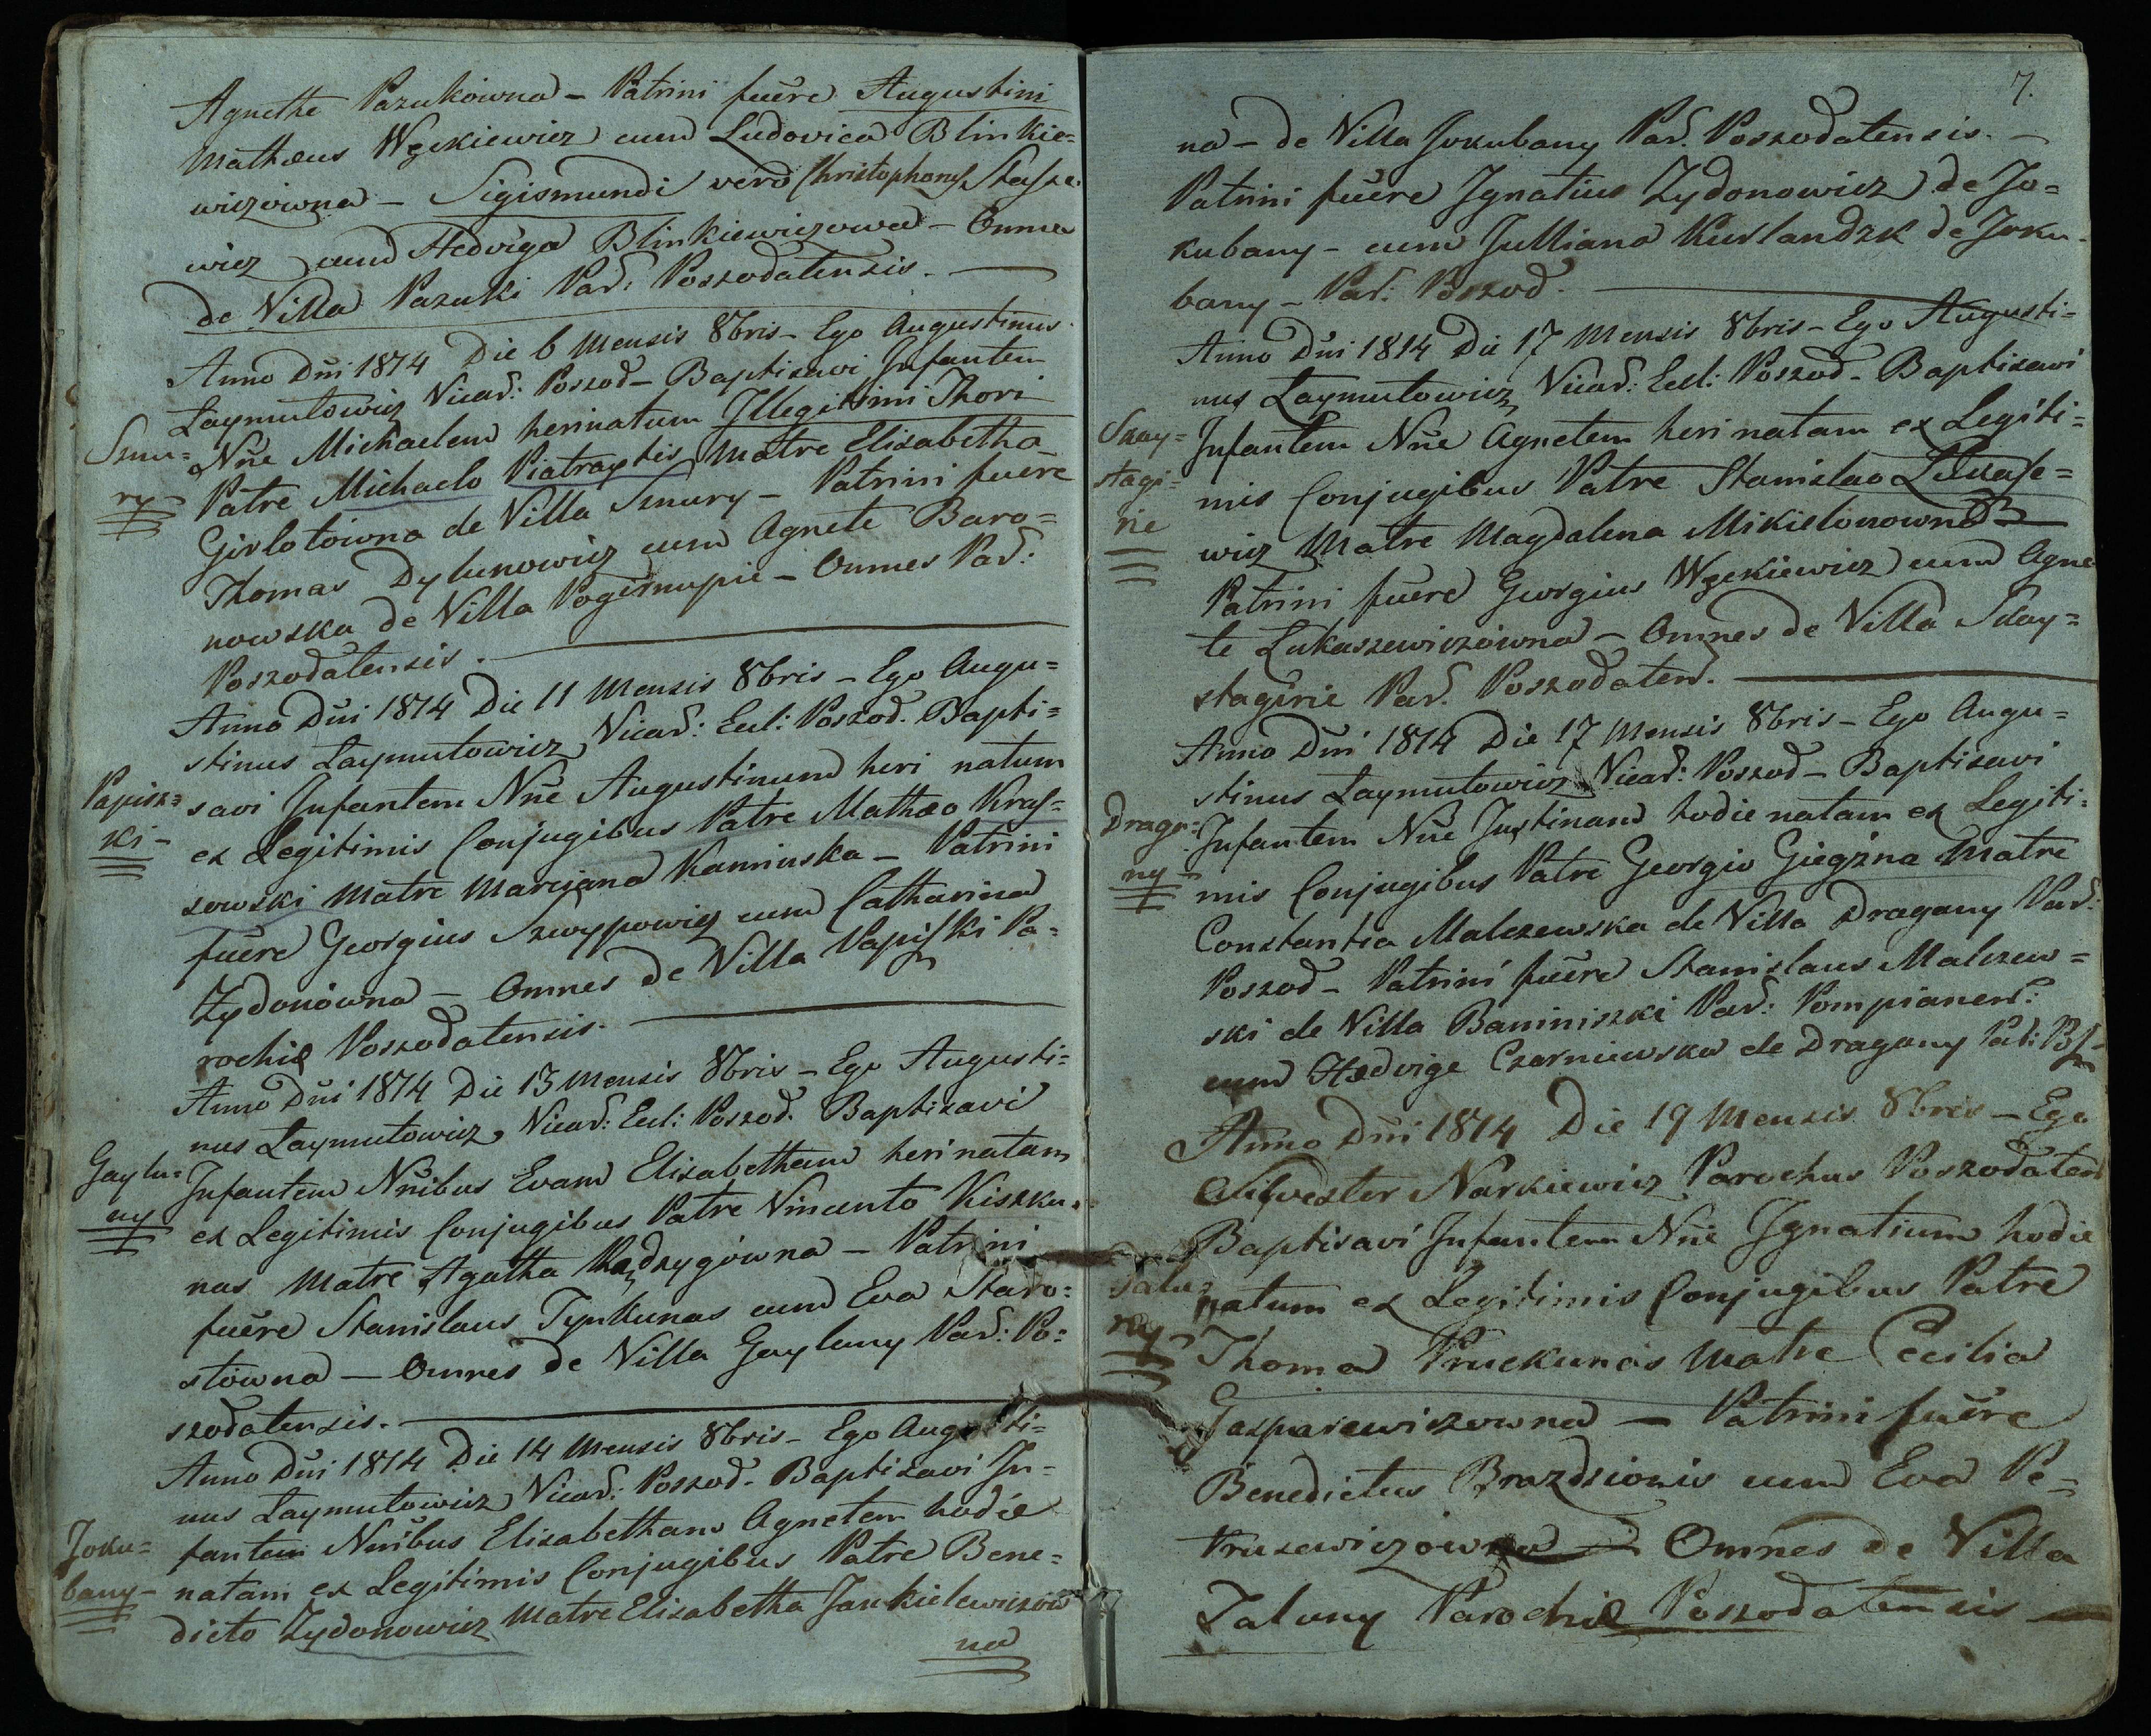 Agnethe Pazukowna – Patrini fuêre Augustini
Mathæus Węckiewicz cum Ludovica Blinkie=
wiczowna – Sigismundi vero Christophorus Stasze
wicz cum Hedviga Blinkiewiczowa – Omnes
de Villa Pazuki Par: Poszodatensis. —
Anno Dñi 1814 Die 6 Mensis 8bris – Ego Augustinus
Laymutowicz Vicar: Poszod – Baptizavi Infantem
Smu=
ry
Nñe Michaelem heri natum Illegitimi Thori
Patre Michaelo Piatraytis Matre Elizabetha
Girlotowna de Villa Smury – Patrini fuêre
Thomas Dylunowicz cum Agnete Baro=
nowska de Villa Pogirnupie – Omnes Par:
Poszodatensis. —
Anno Dñi 1814 Die 11 Mensis 8bris – Ego Augu=
stinus Laymutowicz Vicar: Eccl: Poszod. Bapti=
Papisz=
ki –
savi Infantem Nñe Augustinum heri natum
ex Legitimis Conjugibus Patre Mathæo Kras=
sowski Matre Marcjana Kaminska – Patrini
fuêre Georgius Szwyppowicz cum Catharina
Zydonowna – Omnes de Villa Papiszki Pa=
rochiæ Poszodatensis. —
Anno Dñi 1814 Die 13 Mensis 8bris – Ego Augusti=
nus Laymutowicz Vicar: Eccl: Poszod. Baptizavi
Gaylu=
ny
Infantem Nñibus Evam Elizabetham heri natam
ex Legitimis Conjugibus Patre Vincento Kiszku=
nas Matre Agatha Radzygowna – Patrini
fuêre Stanislaus Tynkunas cum Eva Staro=
stowna — Omnes de Villa Gayluny Par: Po=
szodatensis. —
Anno Dñi 1814 Die 14 Mensis 8bris – Ego Augusti=
nus Laymutowicz Vicar: Poszod – Baptizavi In=
Joku=
bany –
fantem Nñibus Elisabetham Agnetem hodie
natam ex Legitimis Conjugibus Patre Bene=
dicto Zydonowicz Matre Elizabetha Jankielewiczow
na
7.
na – de Villa Jokubany Par. Poszodatensis. –
Patrini fuêre Ignatius Zydonowicz de Jo=
kubany – cum Julliana Kurlandzk de Joku=
bany – Par: Poszod. —
Anno Dñi 1814 Die 17 Mensis 8bris – Ego Augusti=
nus Laymutowicz Vicar: Eccl: Poszod – Baptizavi
Skay=
stagi=
rie
Infantem Nñe Agnetem heri natam ex Legiti=
mis Conjugibus Patre Stanislao Lukasze=
wicz Matre Magdalena Mikielonowna
Patrini fuêre Georgius Węckiewicz cum Agne
te Lukaszewiczowna – Omnes de Villa Skay=
stagirie Par. Poszodaten. —
Anno Dñi 1814 Die 17 Mensis 8bris – Ego Augu=
stinus Laymutowicz Vicar: Poszod – Baptizavi
Draga=
ny
Infantem Nñe Justinam hodie natam ex Legiti=
mis Conjugibus Patre Georgio Giegzna Matre
Constantia Malczewska de Villa Dragany Par:
Poszod – Patrini fuêre Stanislaus Malczew=
ski de Villa Baniniszki Par: Pompianen:
cum Hedvige Czerniewska de Dragany Par: Posz
Anno Dñi 1814 Die 19 Mensis 8bris – Ego
Silvester Narkiewicz Parochus Poszodaten
Baptisavi Infantem Nñe Ignatium hodie
Talu=
ny
natum ex Legitimis Conjugibus Patre
Thoma Pruckunas Matre Cecilia
Gasparewiczowna — Patrini fuêre
Benedictus Brazdzionis cum Eva Pe=
truszewiczowna – Omnes de Villa
Taluny Parochiæ Poszodatensis —